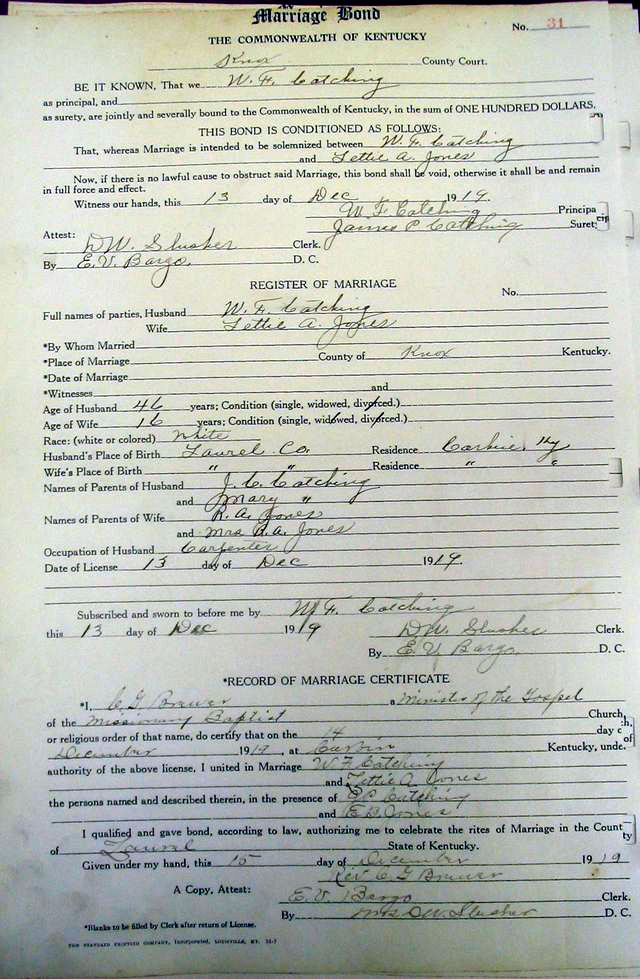 Marriage Bond
No. 31
THE COMMONWEALTH OF KENTUCKY
Knox County Court.
BE IT KNOWN, That we W. F. Catching
as principal, and
as surety, are jointly and severally bound to the Commonwealth of Kentucky, in the sum of ONE HUNDRED DOLLARS.
THIS BOND IS CONDITIONED AS FOLLOWS:
That, whereas Marriage is intended to be solemnized between W. F. Catching
and Lettie A. Jones
Now, if there is no lawful cause to obstruct said Marriage, this bond shall be void, otherwise it shall be and remain
in full force and effect.
Witness our hands, this 13 day of Dec 1919.
W. F. Catching Principa
James P Catching Suret
Attest:
D.W. Slusher Clerk.
By E.V. Bargo. D. C.
REGISTER OF MARRIAGE
No.
Full names of parties, Husband W. F. Catching
Wife Lettie A. Jones
*By Whom Married
*Place of Marriage County of Knox Kentucky.
*Date of Marriage
*Witnesses and
Age of Husband 46 years; Condition (single, widowed, divorced.)
Age of Wife 16 years; Condition (single, widowed, divorced.)
Race: (white or colored) White
Husband's Place of Birth Laurel Co. Residence Corbin, Ky
Wife's Place of Birth " " Residence " "
Names of Parents of Husband J. C. Catching
and Mary "
Names of Parents of Wife R. A. Jones
and Mrs R. A. Jones
Occupation of Husband Carpenter
Date of License 13 day of Dec 1919.
Subscribed and sworn to before me by W. F. Catching
this 13 day of Dec 1919 D.W. Slusher Clerk.
By E.V. Bargo. D. C.
*RECORD OF MARRIAGE CERTIFICATE
*I, C G Brewer a Minister of the Gospel
of the Missionary Baptist Church
or religious order of that name, do certify that on the 14 day of
December 1919, at Corbin Kentucky, unde.
authority of the above license, I united in Marriage W F Catching
and Lettie A Jones
the persons named and described therein, in the presence of Catching
and E D Jones
I qualified and gave bond, according to law, authorizing me to celebrate the rites of Marriage in the County
of Laurel State of Kentucky.
Given under my hand, this 15 day of December 1919
Rev. C G Brewer
A Copy, Attest: E. V. Bargo C.
By Mrs D.W. Slusher D. C.
*Blanks to be filled by Clerk after return of License.
THE STANDARD PRINTING COMPANY, Incorporated, LOUISVILLE, KY.